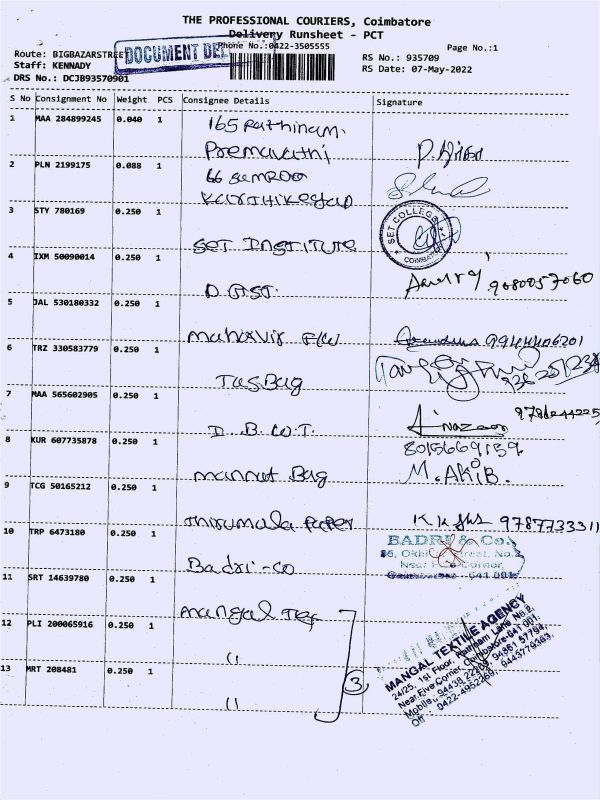 THE PROFESSIONAL COURIERS, Coimbatore
Delivery Runsheet - PCT
Phone No.:0422-3505555
Page No.:1
Route: BIGBAZARSTREET
DOCUMENT DEL
RS No.: 935709
Staff: KENNADY
RS Date: 07-May-2022
DRS No.: DCJB93570901
S No Consignment No Weight PCS Consignee Details Signature
1 MAA 284899245 0.040 1 165 Rathinam.
Premavathi
2 PLN 2199175 0.088 1 66
Karthikeyan
3 STY 780169 0.250 1 SET INSTITUTE
SET COLLEGE
COIMBATORE
4 IXM 50090014 0.250 1
9080057060
5 JAL 530180332 0.250 1 Mahavir
9944406201
6 TRZ 330583779 0.250 1 TasBag
7 MAA 565602905 0.250 1 D.B.CO.T.
8 KUR 607735878 0.250 1 mannat Bag
8015669159
M. AKIB.
9 TCG 50165212 0.250 1 Thirumala Paper
9787733311
10 TRP 6473180 0.250 1 Badri-co
BADRI & Co.,
11 SRT 14639780 0.250 1 Mangal Tex
12 PLI 200065916 0.250 1 "
13 MRT 208481 0.250 1 "
3
MANGAL TEXTILE AGENCY
24/25, 1st Floor, Rathinam Lane No.2,
Near Five Corner, Coimbatore-641 001.